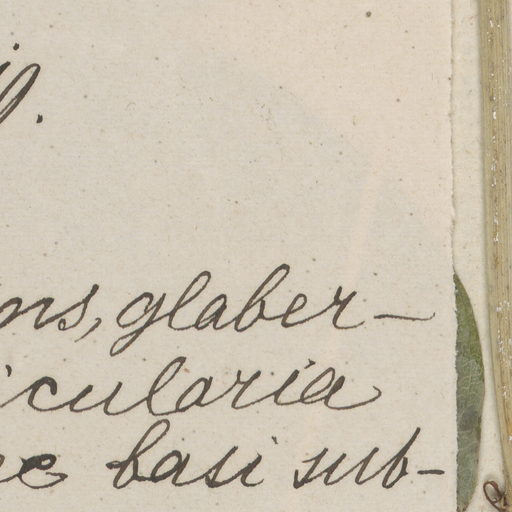 ns, glaber-
icularia
basi sub-